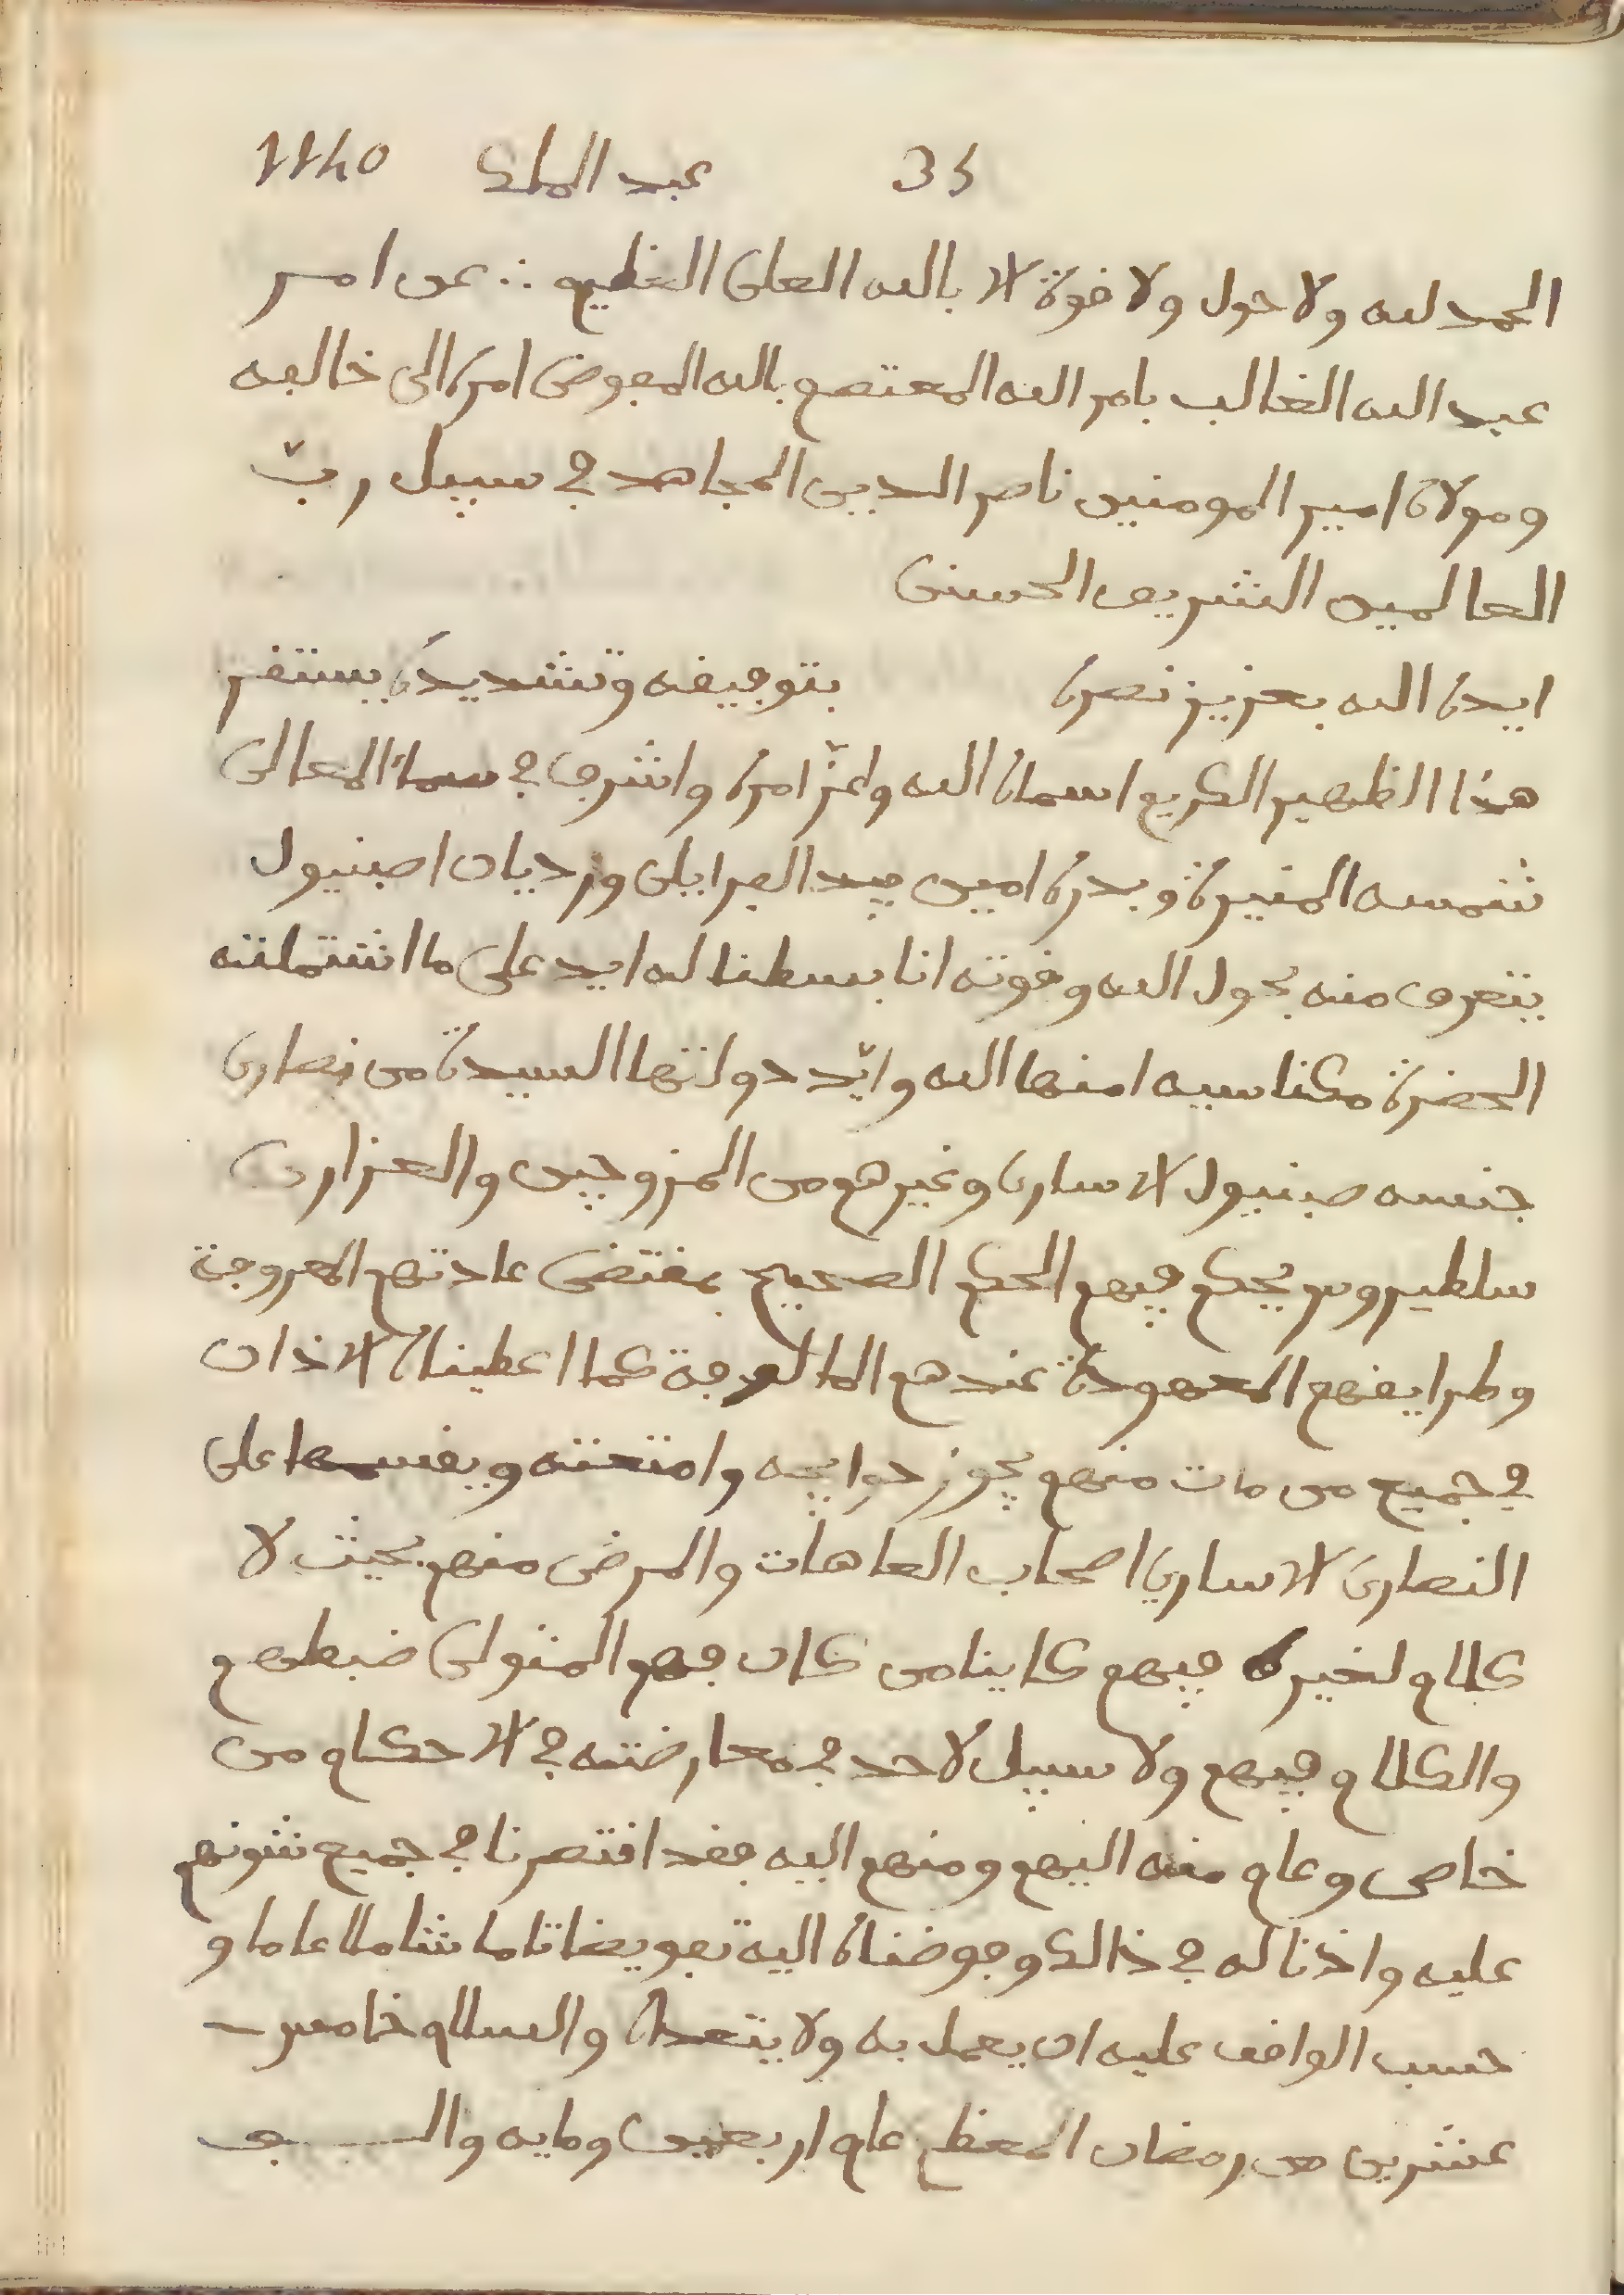 35 عبد الملك 1140
الحمد لله ولا حول ولا قوة الا بالله العلى العظيم ∴ عن امر
عبد الله الغالب بامر الله المعتصم بالله المفوض امره الى خالفه
ومولاه امير المومنين ناصر الدين المجاهد في سبيل ربّ
العالمين الشريف الحسنى
ايده الله بعزيز نصره بتوفيقه وتشديده يستقر
هذا الظهير الكريم اسماه الله واعزّ امره واشرف في سماء المعالى
شمسه المنيرة وبدره امين بيد الفرايلى ورديان اصبنيول
يتعرف منه بحول الله وقوته انا بسطنا له ايد على ما اشتملته
الحضرة مكناسيه امنها الله وايّد دولتها السيدة من نصارى
جنسه صبنيول الاسارى وغيرهم من المزوجين والعزارى
سلطيروس يحكم فيهم الحكم الصحيح بمقتضى عادتهم المعروفة
وطرايقهم المعهودة عندهم المالوفة كما اعطيناه الاذان
في جميع من مات منهم يحوز حوايجه وامتعته ويقسمها على
النصارى الاساري اصحاب العاهات والمرضى منهم بحيث لا
كلام لغيره فيهم كاينا من كان فهو المتولى ضبطهم
والكلام فيهم ولا سبيل لاحد في معارضته في الاحكام من
خاص وعام منه اليهم ومنهم اليه فقد اقتصرنا في جميع شونهم
عليه واذنا له في ذالك وفوضناه اليه تفويضا تاما شاملا عاما و
حسب الواقف عليه ان يعمل به ولا يتعداه والسلام خامس
عشرين من رمضان المعظم عام اربعين ومايه والف